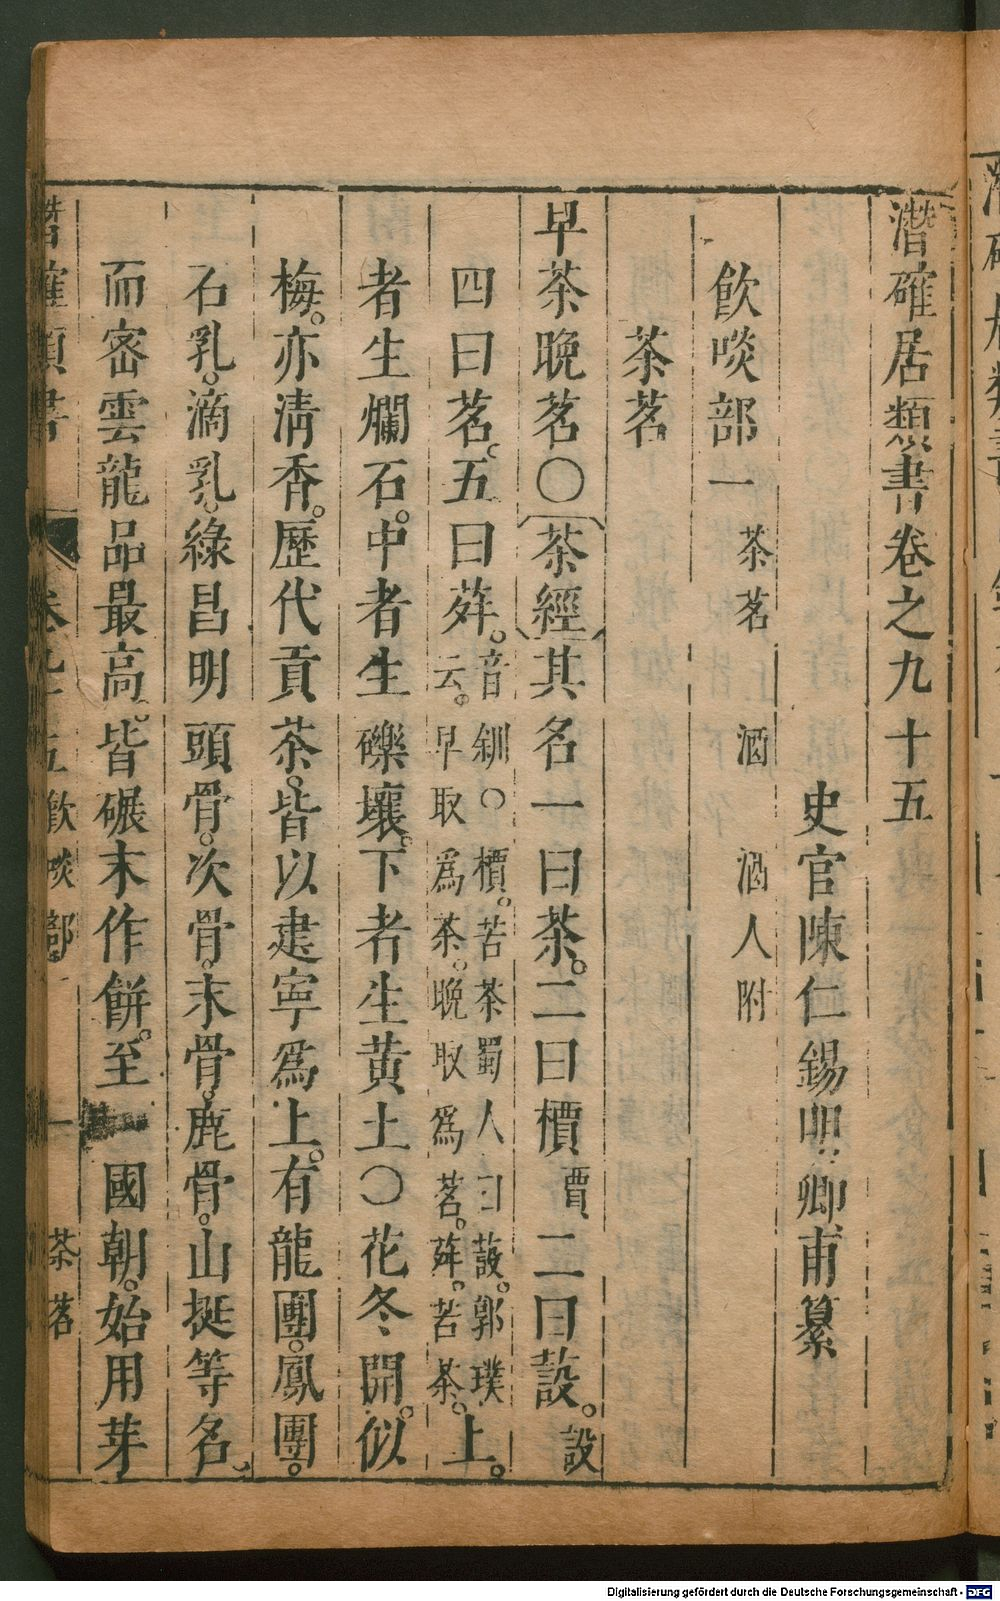 潛確居類書卷之九十五
史官陳仁錫明卿甫纂
飲啖部一 茶茗 酒 酒人附
茶茗
早茶晚茗〇〔茶經〕其名一曰茶。二曰檟賈二曰蔎。設
四曰茗。五曰荈。音釧〇檟。苦茶蜀人曰蔎。郭璞云。早取爲茶。晚取爲茗。荈。苦茶。上。
者生爛石。中者生礫壤。下者生黃土〇花冬開。似
梅。亦清香。歷代貢茶。皆以建寧爲上。有龍團。鳳團。
石乳。滴乳。綠昌明頭骨。次骨。末骨。鹿骨。山挺等名。
而密雲龍品最高。皆碾末作餅。至 國朝。始用芽
潛確類書 卷九十五飲啖部一 一 茶茗
Digitalisierung gefördert durch die Deutsche Forschungsgemeinschaft - DFG